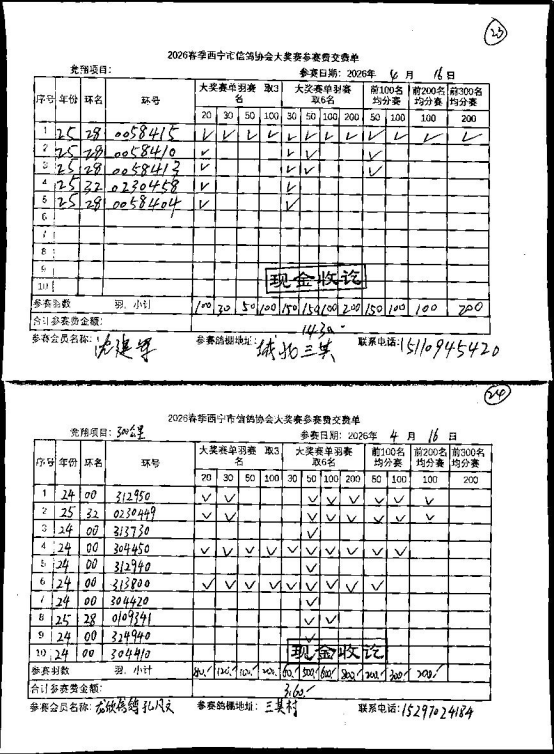 23
2026春季西宁市信鸽协会大奖赛参赛费交费单
竞翔项目: 参赛日期: 2026年 4 月 16 日
序号 年份 环名 环号 大奖赛单羽赛 取3名 大奖赛单羽赛 取6名 前100名均分赛 前200名均分赛 前300名均分赛
20 30 50 100 30 50 100 200 50 100 100 200
1 25 28 0058415 ✓ ✓ ✓ ✓ ✓ ✓ ✓ ✓ ✓ ✓ ✓ ✓
2 25 28 0058410 ✓ ✓ ✓ ✓
3 25 28 0058413 ✓ ✓ ✓ ✓
4 25 32 0230458 ✓ ✓
5 25 28 0058404 ✓ ✓
6
7
8
9
10
现金收讫
参赛羽数 羽、小计 100 30 50 100 150 150 100 200 150 100 100 200
合计参赛费金额: 1430.-
参赛会员名称: 沈建 参赛鸽棚地址: 城北三其 联系电话: 15110945420
24
2026春季西宁市信鸽协会大奖赛参赛费交费单
竞翔项目: 300公里 参赛日期: 2026年 4 月 16 日
序号 年份 环名 环号 大奖赛单羽赛 取3名 大奖赛单羽赛 取6名 前100名均分赛 前200名均分赛 前300名均分赛
20 30 50 100 30 50 100 200 50 100 100 200
1 24 00 312950 ✓ ✓ ✓ ✓ ✓ ✓ ✓ ✓
2 25 32 0230449 ✓ ✓ ✓ ✓ ✓ ✓ ✓ ✓
3 24 00 313730 ✓
4 24 00 304450 ✓ ✓ ✓ ✓ ✓ ✓ ✓ ✓ ✓ ✓
5 24 00 312940 ✓
6 24 00 313800 ✓ ✓ ✓ ✓ ✓ ✓ ✓ ✓ ✓
7 24 00 304420 ✓
8 25 28 0109341 ✓ ✓
9 24 00 324940 ✓
10 24 00 304410
现金收讫
参赛羽数 羽、小计 80.- 120.- 100.- 200.- 60.- 500.- 600.- 800.- 200.- 300.- 200.-
合计参赛费金额: 3160.-
参赛会员名称: 龙 鸽 孔 文 参赛鸽棚地址: 三其村 联系电话: 15297024184